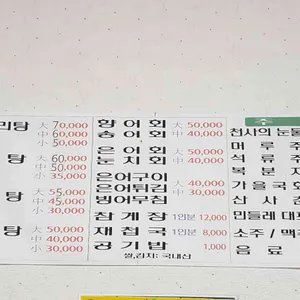 미탕 大 70,000
中 60,000
小 50,000
탕 大 60,000
中 50,000
小 35,000
탕 大 55,000
中 45,000
小 30,000
탕 大 50,000
中 40,000
小 30,000
향어회 大 50,000
송어회 中 40,000
은어회 大 50,000
눈치회 中 40,000
은어구이
은어튀김 大 40,000
빙어무침 中 30,000
참게장 1인분 12,000
재첩국 1인분 8,000
공기밥 1,000
쌀,김치: 국내산
주
천사의 눈물
머루주
석류주
복분자
가을국
산사춘
민들레 대포
소주 / 맥
음료